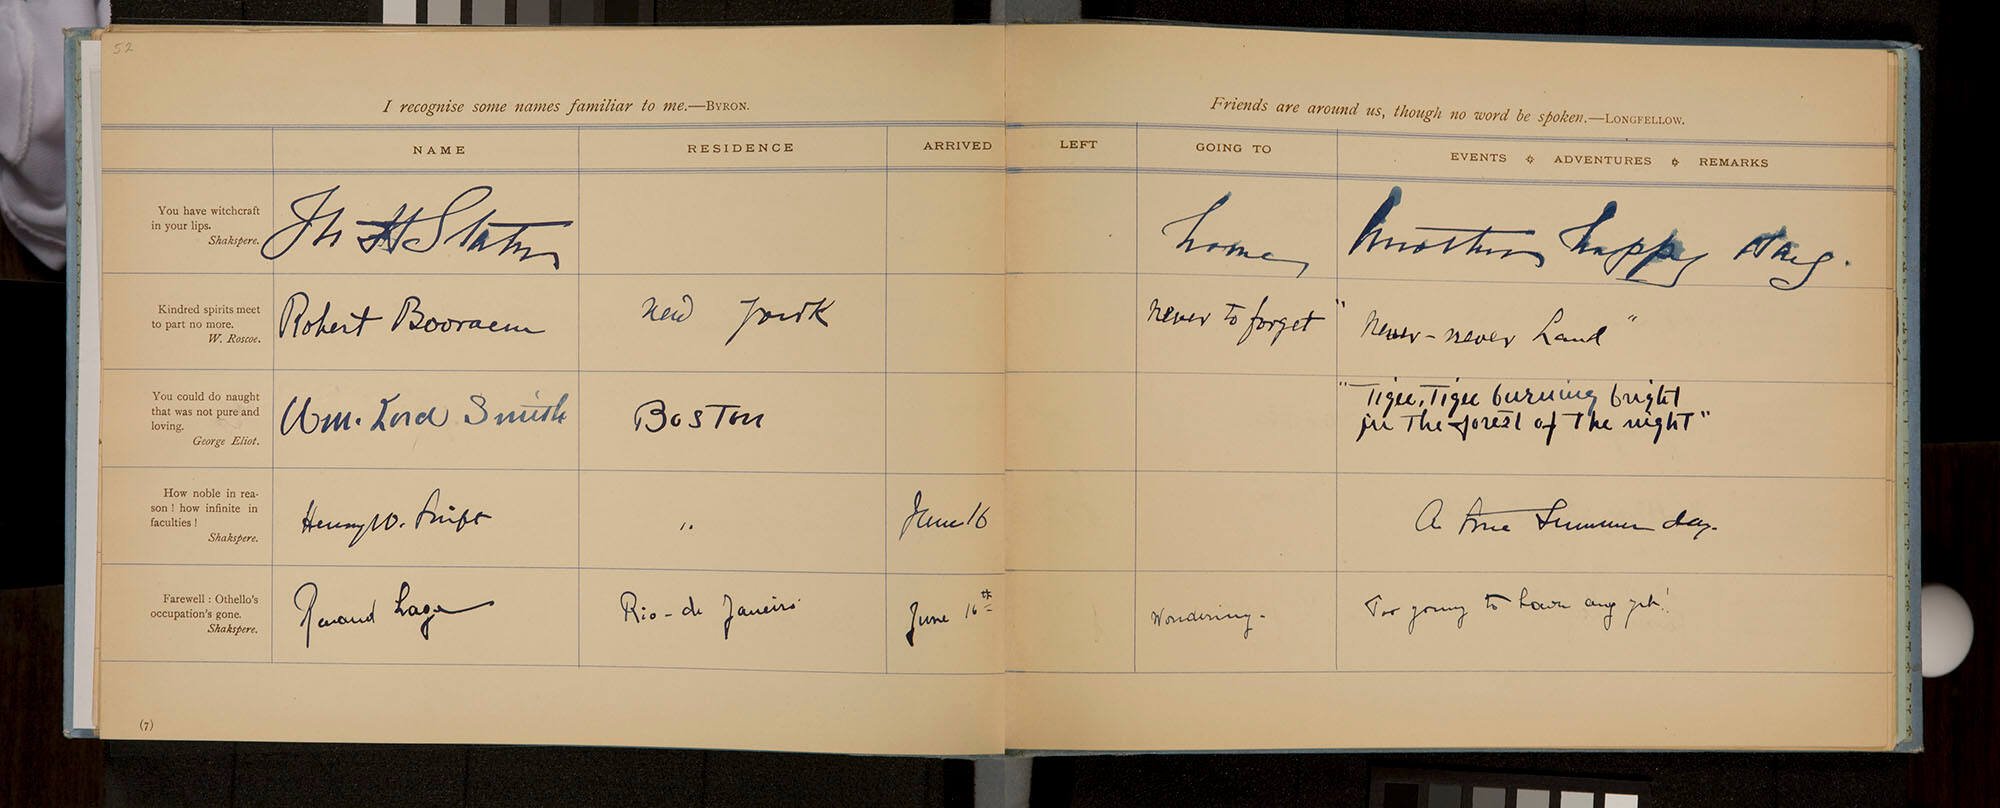 52
I recognise some names familiar to me.—BYRON.
Friends are around us, though no word be spoken.—LONGFELLOW.
NAME RESIDENCE ARRIVED LEFT GOING TO EVENTS ✣ ADVENTURES ✣ REMARKS
You have witchcraft
in your lips.
Shakspere.
home Another happy stay.
Kindred spirits meet
to part no more.
W. Roscoe.
Robert Booraem New York never to forget "Never-never Land"
You could do naught
that was not pure and
loving.
George Eliot.
Wm. Lord Smith Boston
"Tiger, Tiger burning bright
in the forest of the night"
How noble in rea-
son! how infinite in
faculties!
Shakspere.
Henry W. Swift " June 16 A true Summer day.
Farewell: Othello's
occupation's gone.
Shakspere.
Renaud Lage Rio-de Janeiro June 16th Wondering. Too young to have any yet!
(7)